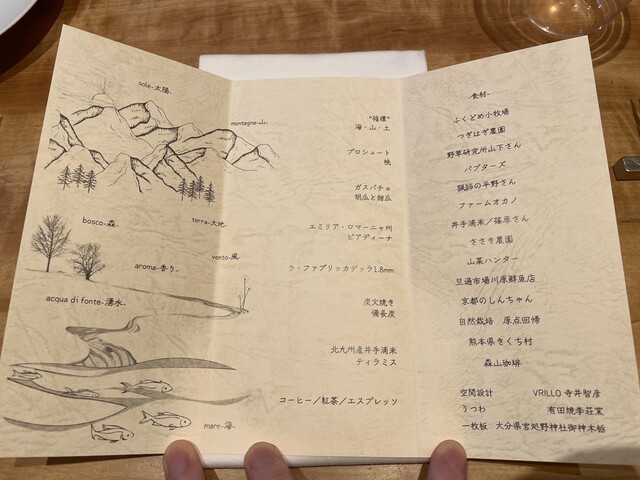 sole-太陽-
montagna-山-
bosco-森-
terra-大地-
vento-風-
aroma-香り-
acqua di fonte-湧水-
mare-海-
"循環"
海・山・土
プロシュート
桃
ガスパチョ
胡瓜と甜瓜
エミリア・ロマーニャ州
ピアディーナ
ラ・ファブリッカデッラ1.8mm
炭火焼き
備長炭
北九州産井手浦米
ティラミス
コーヒー/紅茶/エスプレッソ
-食材-
ふくどめ小牧場
つぎはぎ農園
野草研究所山下さん
パブターズ
猟師の平野さん
ファームオカノ
井手浦米/篠原さん
ささき農園
山菜ハンター
旦過市場川原鮮魚店
京都のしんちゃん
自然栽培 原点回帰
熊本県きくち村
森山珈琲
空間設計 VRILLO 寺井智彦
うつわ 有田焼李荘窯
一枚板 大分県宮処野神社御神木栃